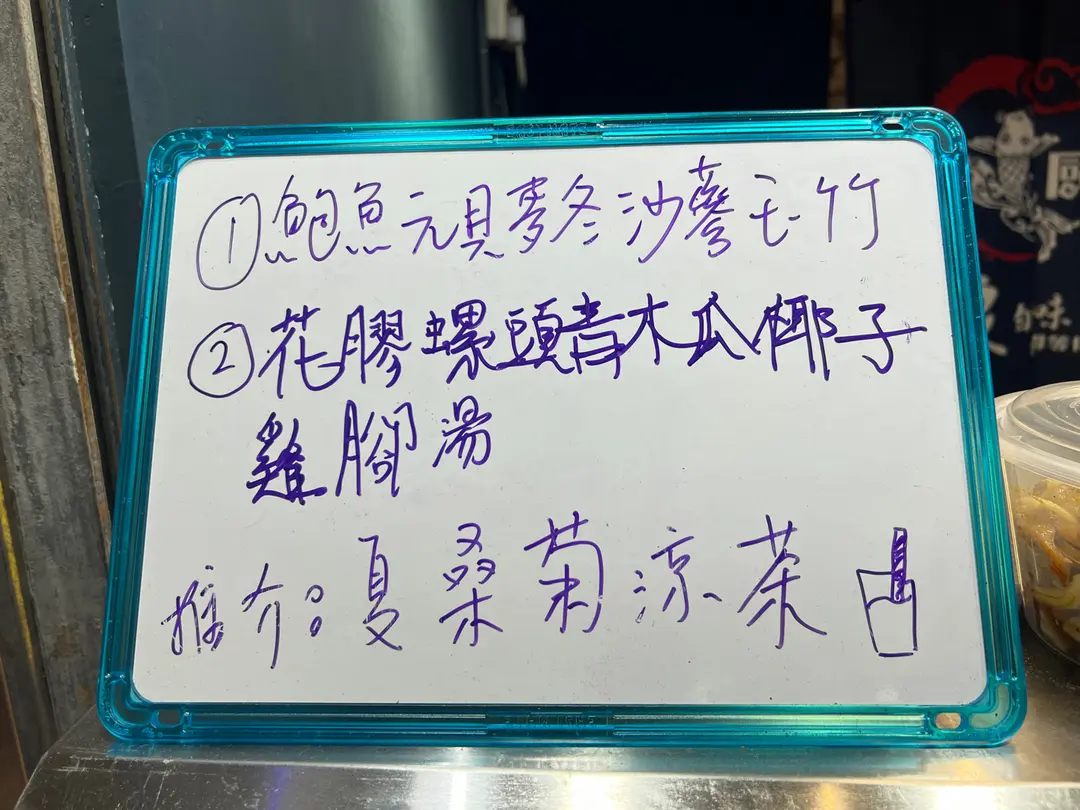 ①鮑魚元貝麥冬沙蔘玉竹
②花膠螺頭青木瓜椰子
雞腳湯
推介:夏桑菊涼茶
自味